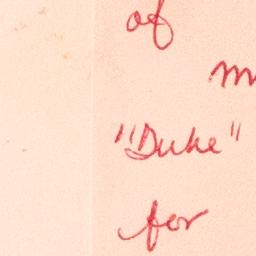 of
"Duke"
for